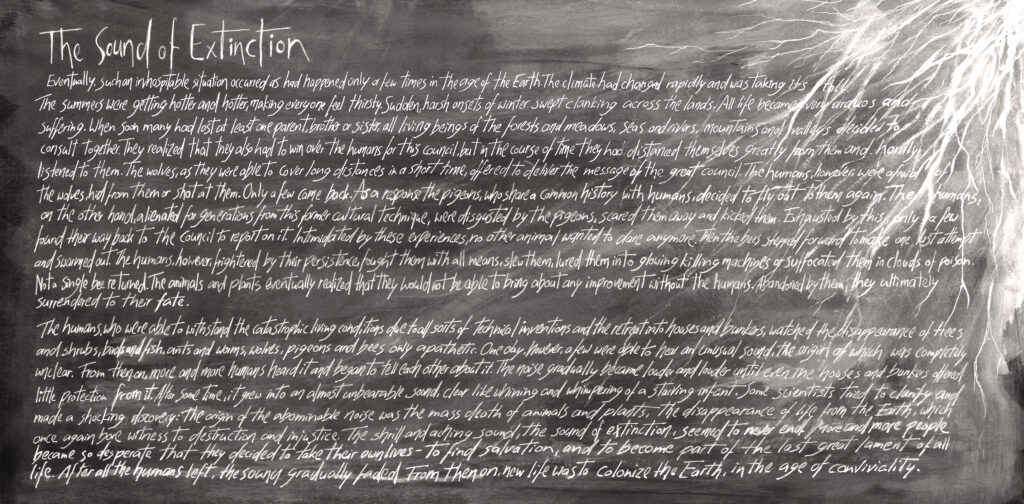 The Sound of Extinction
Eventually, such an inhospitable situation occurred as had happened only a few times in the age of the Earth. The climate had changed rapidly and was taking its toll.
The summers were getting hotter and hotter, making everyone feel thirsty. Sudden, harsh onsets of winter swept clanking across the lands. All life became very arduous and
suffering. When soon many had lost at least one parent, brother or sister, all living beings of the forests and meadows, seas and rivers, mountains and valleys decided to
consult together. They realized that they also had to win over the humans for this council, but in the course of time they had distanced themselves greatly from them and hardly
listened to them. The wolves, as they were able to cover long distances in a short time, offered to deliver the message of the great council. The humans, however, were afraid of
the wolves, hid from them or shot at them. Only a few came back. As a response the pigeons, who share a common history with humans, decided to fly out to them again. The humans,
on the other hand, alienated for generations from this former cultural technique, were disgusted by the pigeons, scared them away and kicked them. Exhausted by this, only a few
found their way back to the council to report on it. Intimidated by these experiences, no other animal wanted to dare anymore. Then the bees stepped forward to make one last attempt
and swarmed out. The humans, however, frightened by their persistence, fought them with all means, slew them, lured them into glowing killing machines or suffocated them in clouds of poison.
Not a single bee returned. The animals and plants eventually realized that they would not be able to bring about any improvement without the humans. Abandoned by them, they ultimately
surrendered to their fate.
The humans, who were able to withstand the catastrophic living conditions due to all sorts of technical inventions and the retreat into houses and bunkers, watched the disappearance of trees
and shrubs, birds and fish, ants and worms, wolves, pigeons and bees only apathetic. One day, however, a few were able to hear an unusual sound, the origin of which was completely
unclear. From then on, more and more humans heard it and began to tell each other about it. The noise gradually became louder and louder until even the houses and bunkers offered
little protection from it. After some time, it grew into an almost unbearable sound, clear like whining and whimpering of a starving infant. Some scientists tried to clarify and
made a shocking discovery: The origin of the abominable noise was the mass death of animals and plants. The disappearance of life from the Earth, which
once again bore witness to destruction and injustice. The shrill and aching sound, the sound of extinction, seemed to never end. More and more people
became so desperate that they decided to take their own lives - to find salvation, and to become part of the last great lament of all
life. After all the humans left, the sound gradually faded. From then on, new life was to colonize the Earth, in the age of conviviality.